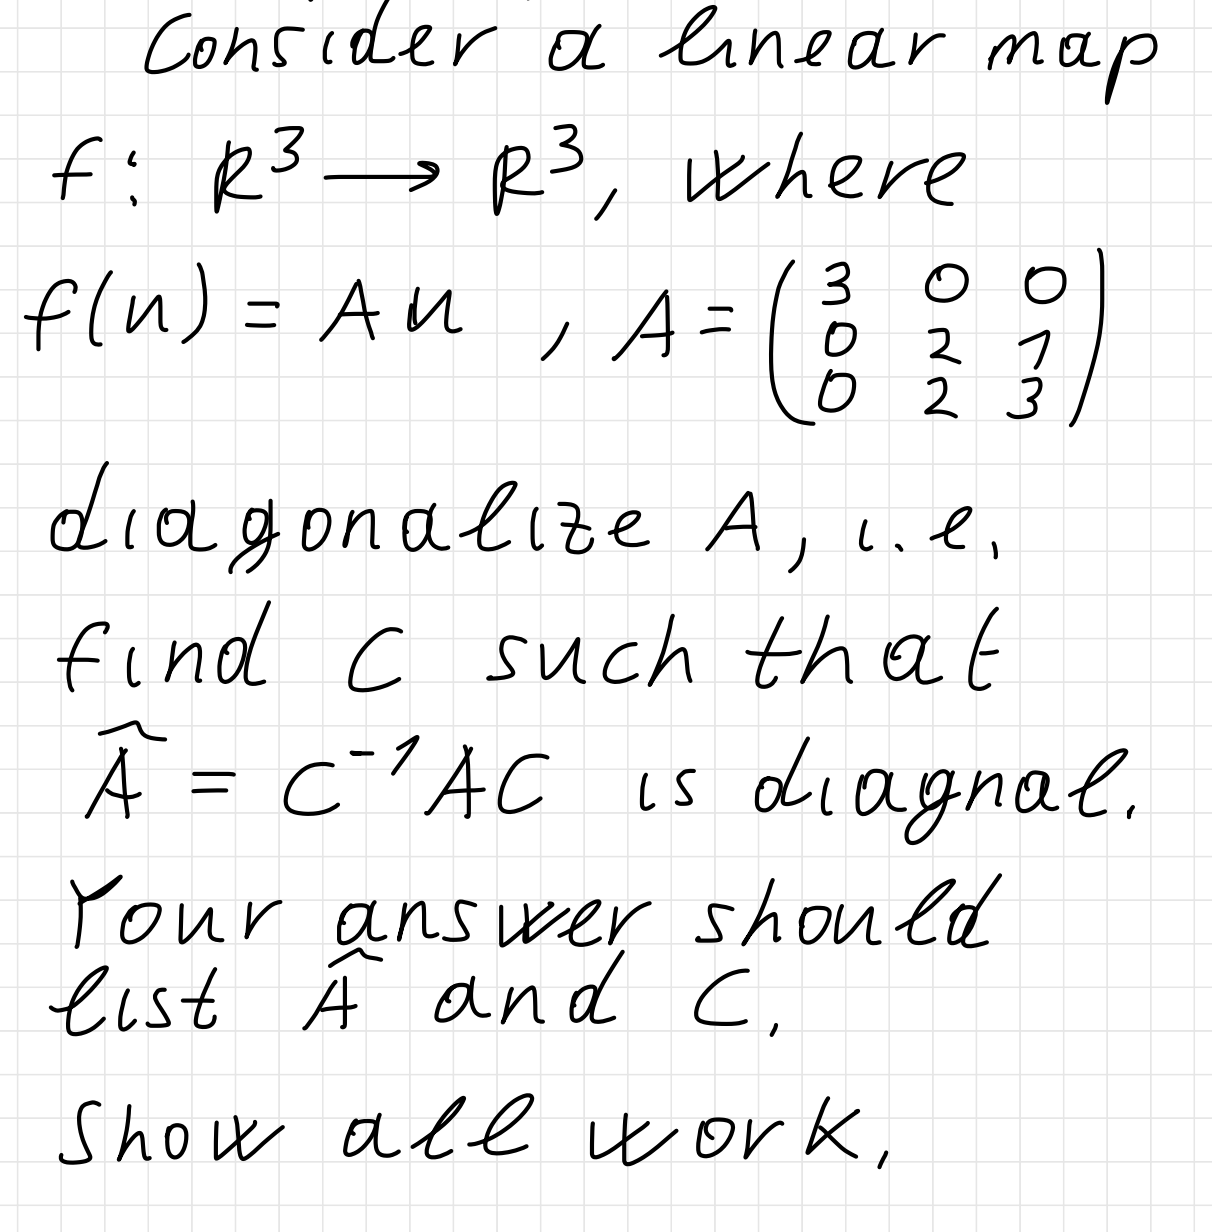 Consider a linear map
f: R³ → R³, where
f(u) = A u , A = (3 0 0
0 2 1
0 2 3)
diagonalize A, i.e.
find C such that
Â = C⁻¹AC is diagnal.
Your answer should
list Â and C.
Show all work.